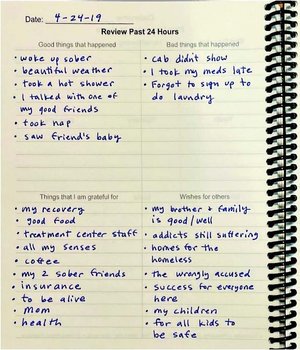 Date: 4-24-19
Review Past 24 Hours
Good things that happened
• woke up sober
• beautiful weather
• took a hot shower
• I talked with one of
my good friends
• took nap
• saw friend's baby
Bad things that happened
• cab didn't show
• I took my meds late
• Forgot to sign up to
do laundry
Things that I am grateful for
• my recovery
• good food
• treatment center staff
• all my senses
• coffee
• my 2 sober friends
• insurance
• to be alive
• Mom
• health
Wishes for others
• my brother & family
is good/well
• addicts still suffering
• homes for the
homeless
• the wrongly accused
• success for everyone
here
• my children
• for all kids to
be safe